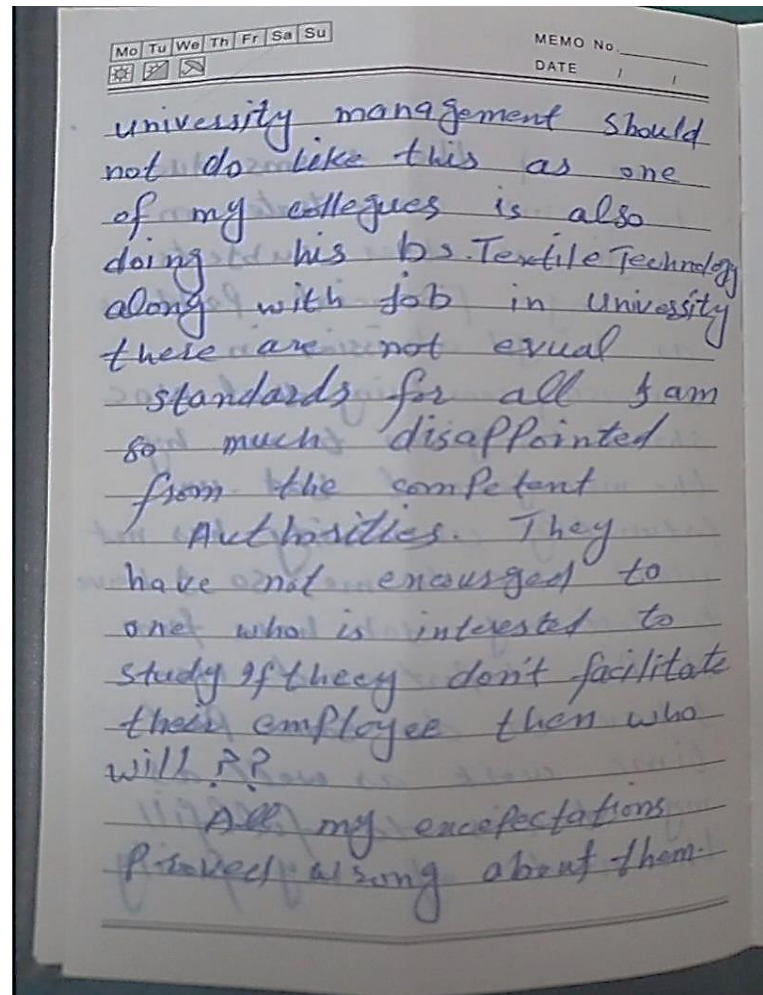 Mo Tu We Th Fr Sa Su
MEMO No.
DATE / /
university management should
not do like this as one
of my collegues is also
doing his bs. Textile Technology
along with job in university
there are not equal
standards for all I am
so much disappointed
from the competent
Authorities. They
have not encourged to
one who is interested to
study If theey don't facilitate
their employee then who
will ??
All my encefectations
Proved wrong about them.